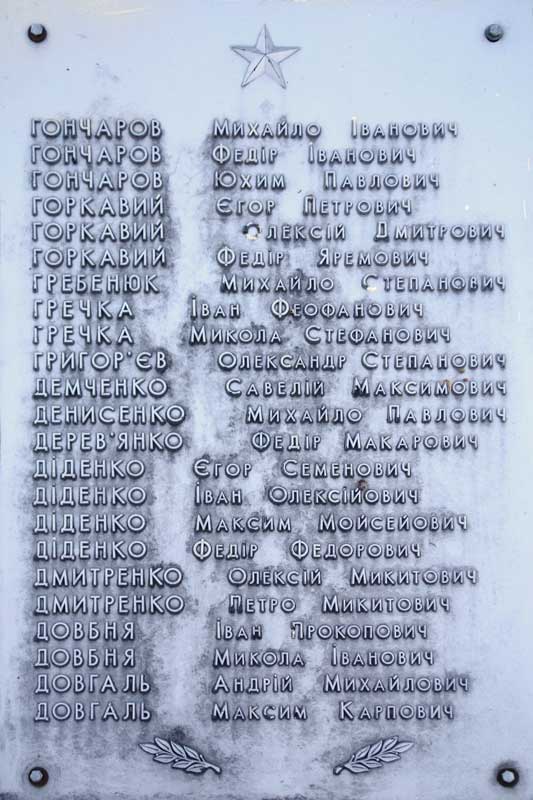 ГОНЧАРОВ Михайло Іванович
ГОНЧАРОВ Федір Іванович
ГОНЧАРОВ Юхим Павлович
ГОРКАВИЙ Єгор Петрович
ГОРКАВИЙ Олексій Дмитрович
ГОРКАВИЙ Федір Яремович
ГРЕБЕНЮК Михайло Степанович
ГРЕЧКА Іван Феофанович
ГРЕЧКА Микола Стефанович
ГРИГОР'ЄВ Олександр Степанович
ДЕМЧЕНКО Савелій Максимович
ДЕНИСЕНКО Михайло Павлович
ДЕРЕВ'ЯНКО Федір Макарович
ДІДЕНКО Єгор Семенович
ДІДЕНКО Іван Олексійович
ДІДЕНКО Максим Мойсейович
ДІДЕНКО Федір Федорович
ДМИТРЕНКО Олексій Микитович
ДМИТРЕНКО Петро Микитович
ДОВБНЯ Іван Прокопович
ДОВБНЯ Микола Іванович
ДОВГАЛЬ Андрій Михайлович
ДОВГАЛЬ Максим Карпович